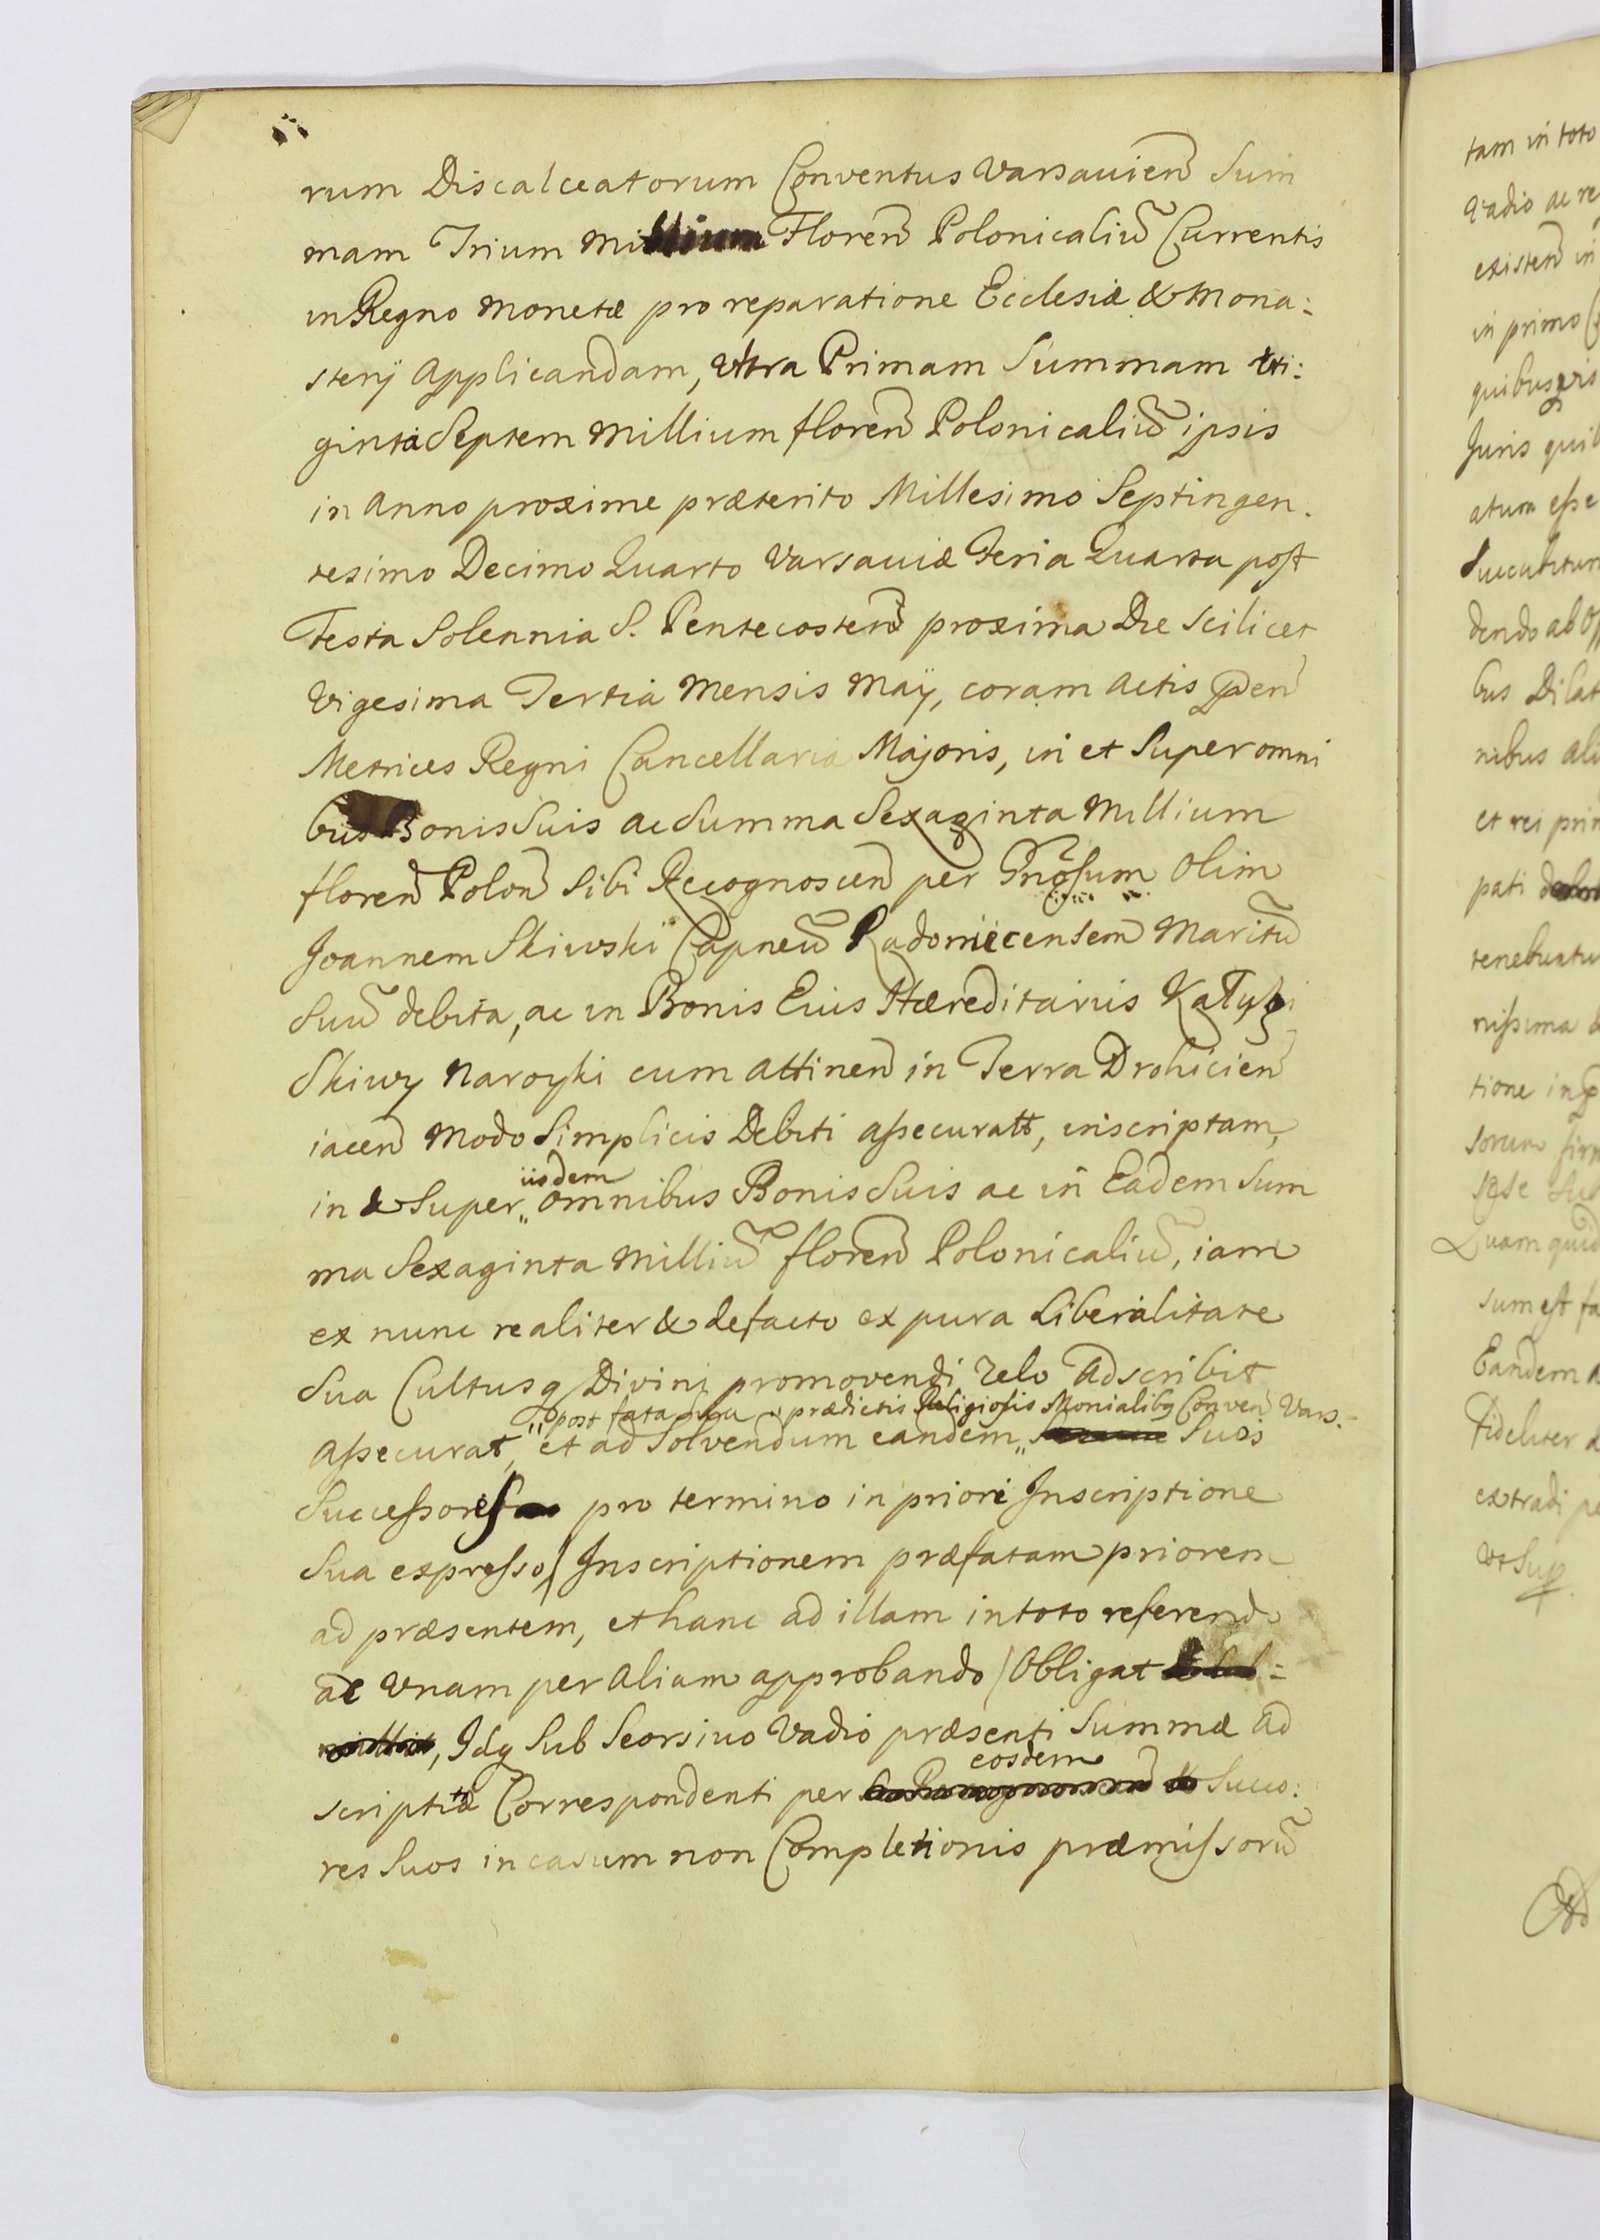 rum Discalceatorum Conventus Varsavien Sum
mam Trium Millium Floren Polonicaliu Currentis
in Regno Monetæ pro reparatione Ecclesiæ & Mona:
sterÿ Applicandam, Ultra Primam Summam Tri:
ginta Septem Millium floren Polonicaliu ipsis
in Anno proxime præterito Millesimo Septingen.
tesimo Decimo Quarto Varsaviæ Feria Quarta post
Festa Solennia S. Pentecosten proxima Die scilicet
Vigesima Tertia Mensis Maÿ, coram Actis
Metrices Regni Cancellaria Majoris, in et Super omni
bus Bonis Suis ac Summa Sexaginta Millium
floren Polon Sibi Recognoscen per Gnosum Olim
Joannem Skiwski Capneu Radomicensem Maritu
Suu debita, ac in Bonis Eius Hæreditariis
Skiwy Naroyki cum Attinen in Terra Drohicien
iacen Modo Simplicis Debiti assecuratt, inscriptam,
iisdem
in & Super,, omnibus Bonis Suis ac in Eadem Sum
ma Sexaginta Milliu floren Polonicaliu, iam
ex nunc realiter & de facto ex pura Liberalitate
Sua Cultusq Divini promovendi Zelo Adscribit
,, post fata sua ,, prædictis Religiosis Monialibq Conven Vars.
Assecurat, et ad Solvendum eandem,, Suos
Successores pro termino in priori Inscriptione
Sua expresso/ Inscriptionem præfatam priorem
ad præsentem, et hanc ad illam in toto referendo
ac Unam per Aliam approbando/ Obligat
, Idq Sub Seorsivo Vadio præsenti Summæ Ad
eosdem
scriptæ Correspondenti per Succo:
res Suos in casum non Completionis præmissoru
tam in toto
Vadio ac re
existen in
in primo
quibusvis
Juris quib
atura esse
Succubitur
dendo ab
bus Dilat
nibus ali
et rei prin
pati
tenebuntu
nissima
tione
sorum firm
sese Sub
Quam quid
sum est fa
Eandem
Fideliter
extradi pe
vt Sup